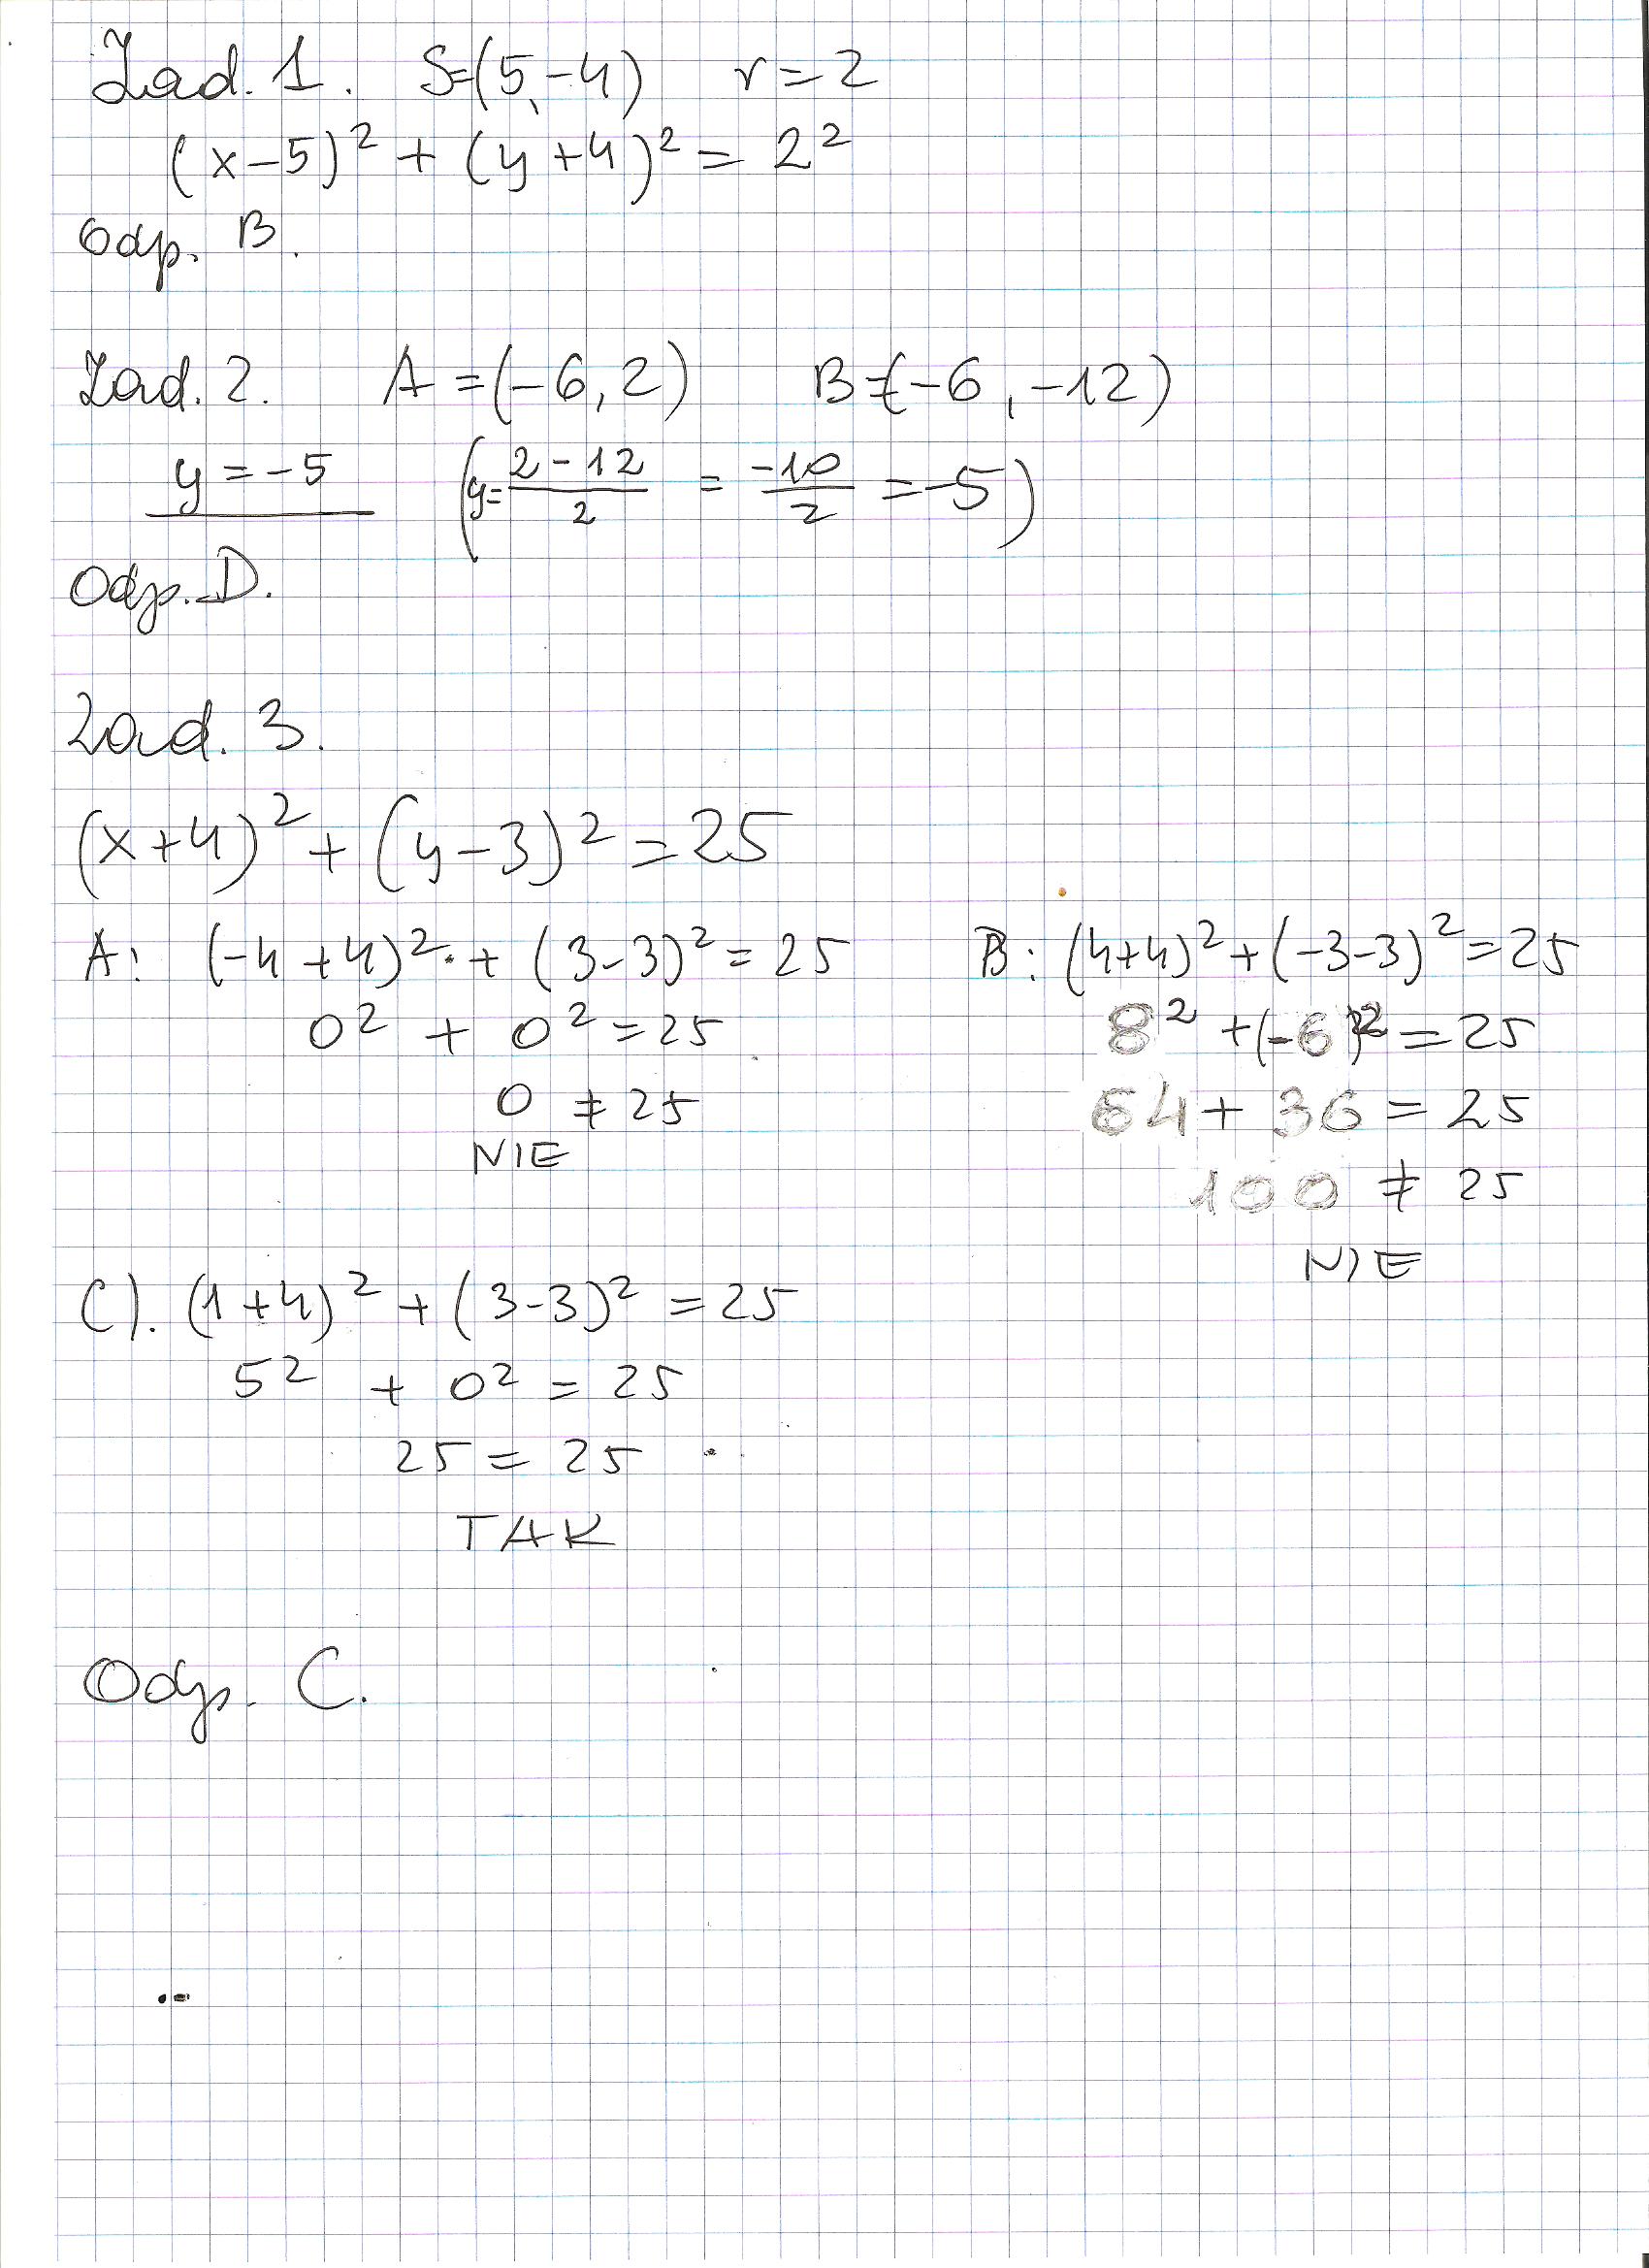 Zad. 1. S=(5,-4) r=2
(x-5)² + (y+4)² = 2²
Odp. B.
Zad. 2. A=(-6,2) B=(-6,-12)
y=-5 (y=\frac{2-12}{2} = \frac{-10}{2} =-5)
Odp. D.
Zad. 3.
(x+4)² + (y-3)² = 25
A: (-4+4)² + (3-3)² = 25
0² + 0² = 25
0 ≠ 25
NIE
B: (4+4)² + (-3-3)² = 25
8² + (-6)² = 25
64 + 36 = 25
100 ≠ 25
NIE
C). (1+4)² + (3-3)² = 25
5² + 0² = 25
25 = 25
TAK
Odp. C.